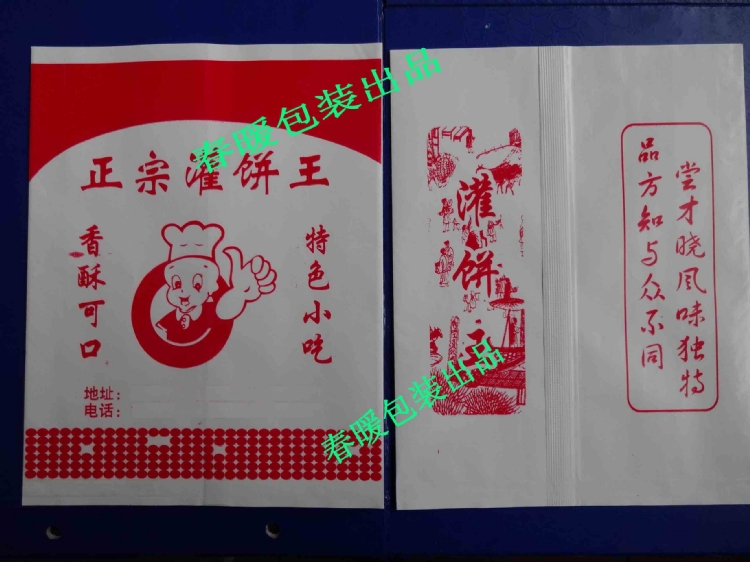 正宗灌饼王
香酥可口
特色小吃
地址:
电话:
灌饼王
尝才晓风味独特
品方知与众不同
春暖包装出品
春暖包装出品